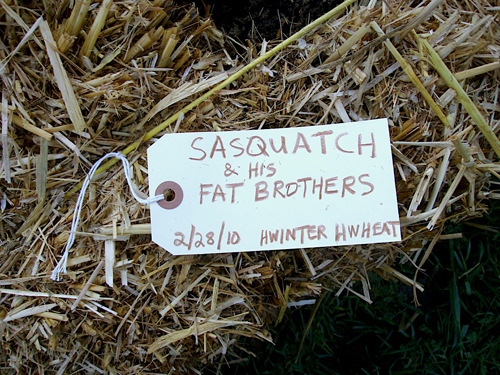 SASQUATCH
& HIS
FAT BROTHERS
2/28/10 HWINTER HWHEAT